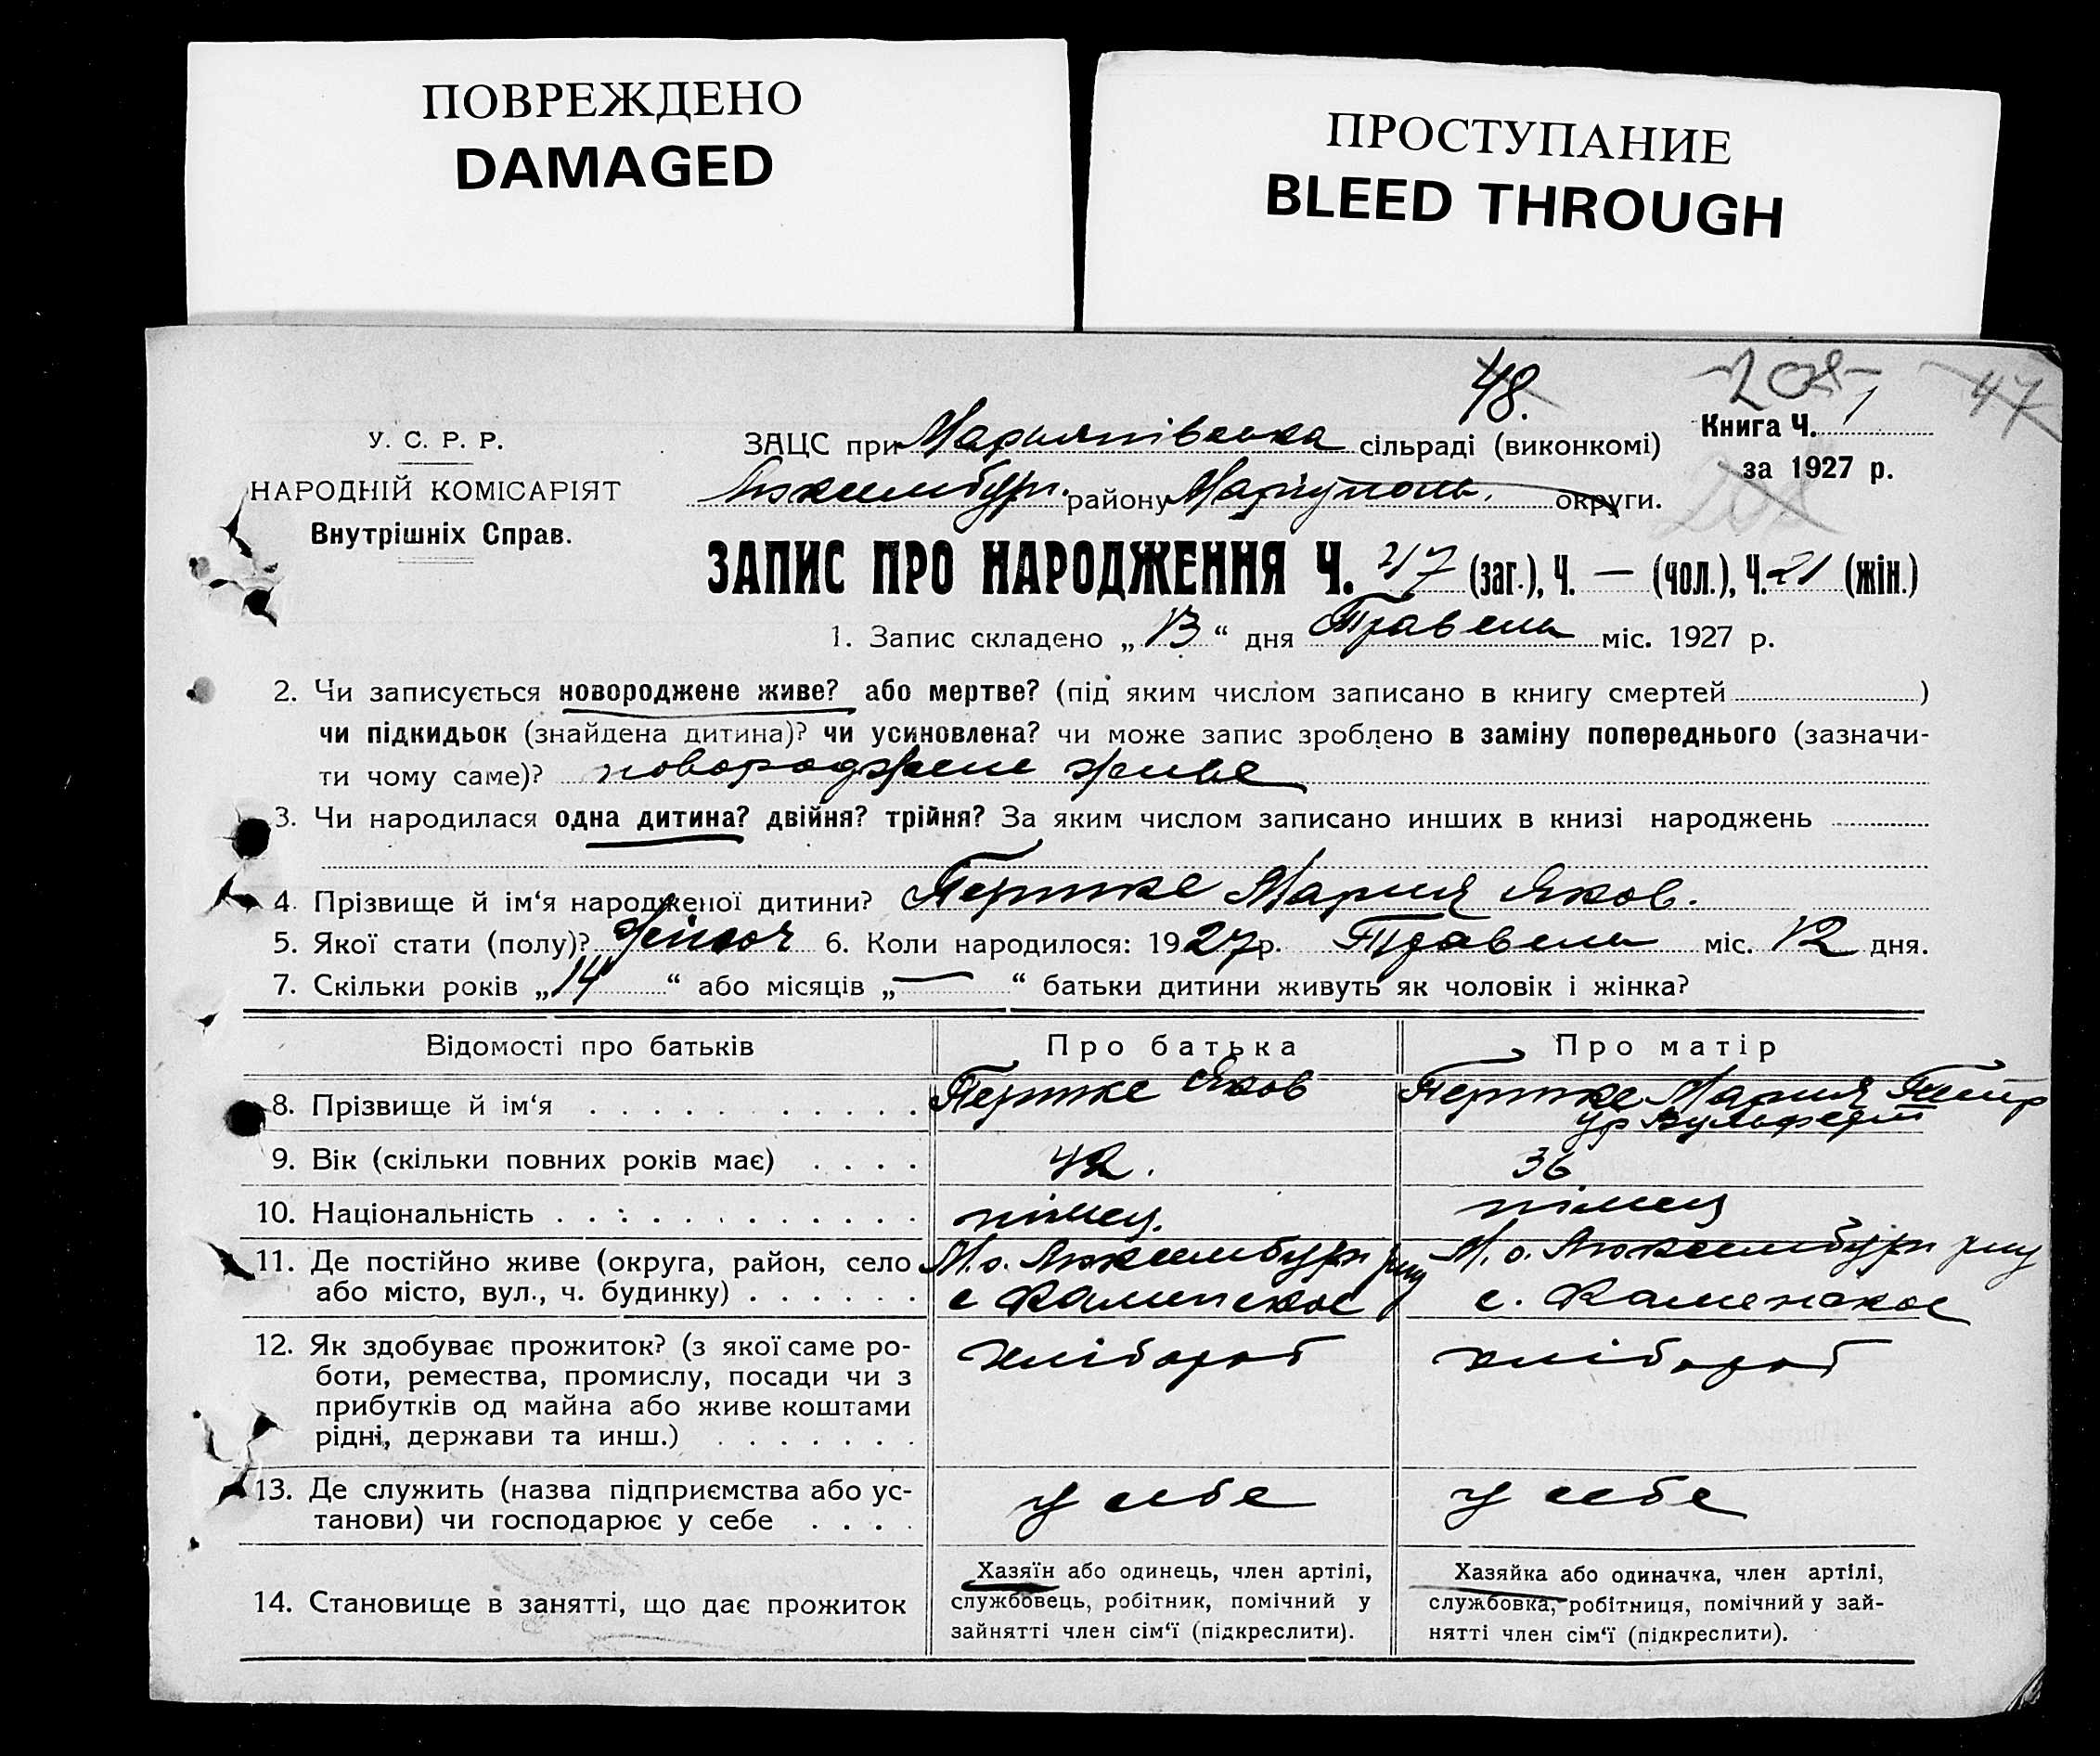 ПОВРЕЖДЕНО
DAMAGED
ПРОСТУПАНИЕ
BLEED THROUGH
48.
208
47
У. С. Р. Р.
НАРОДНІЙ КОМІСАРІЯТ
Внутрішніх Справ.
ЗАЦС при Марьяпівська сільраді (виконкомі)
Книга Ч. 1
за 1927 р.
Люксембург. району Маріуполь. округи.
ЗАПИС ПРО НАРОДЖЕННЯ Ч. 47 (заг.), Ч. — (чол.), Ч. 21 (жін.)
1. Запис складено „ 13 “ дня Травень міс. 1927 р.
2. Чи записується новороджене живе? або мертве? (під яким числом записано в книгу смертей )
чи підкидьок (знайдена дитина)? чи усиновлена? чи може запис зроблено в заміну попереднього (зазначи-
ти чому саме)? новороджене живе
3. Чи народилася одна дитина? двійня? трійня? За яким числом записано инших в книзі народжень
4. Прізвище й ім‘я народженої дитини? Пертке Мария Яков.
5. Якої стати (полу)? Жіноч 6. Коли народилося: 1927 р. Травень міс. 12 дня.
7. Скільки років „ 14 “ або місяців „ — “ батьки дитини живуть як чоловік і жінка?
Відомості про батьків Про батька Про матір
8. Прізвище й ім‘я Пертке Яков Пертке Мария Петр
ур Вульферт
9. Вік (скільки повних років має) 42. 36
10. Національність німец. німец
11. Де постійно живе (округа, район, село М. о. Люксембург М. о. Люксембург
або місто, вул., ч. будинку) с Каменское с. Каменское
12. Як здобуває прожиток? (з якої саме ро- хлібороб хлібороб
боти, ремества, промислу, посади чи з
прибутків од майна або живе коштами
рідні, держави та инш.)
13. Де служить (назва підприємства або ус- у себе у себе
танови) чи господарює у себе
14. Становище в занятті, що дає прожиток
Хазяїн або одинець, член артілі,
службовець, робітник, помічний у
зайнятті член сім‘ї (підкреслити).
Хазяйка або одиначка, член артілі,
службовка, робітниця, помічний у зай-
нятті член сім‘ї (підкреслити).